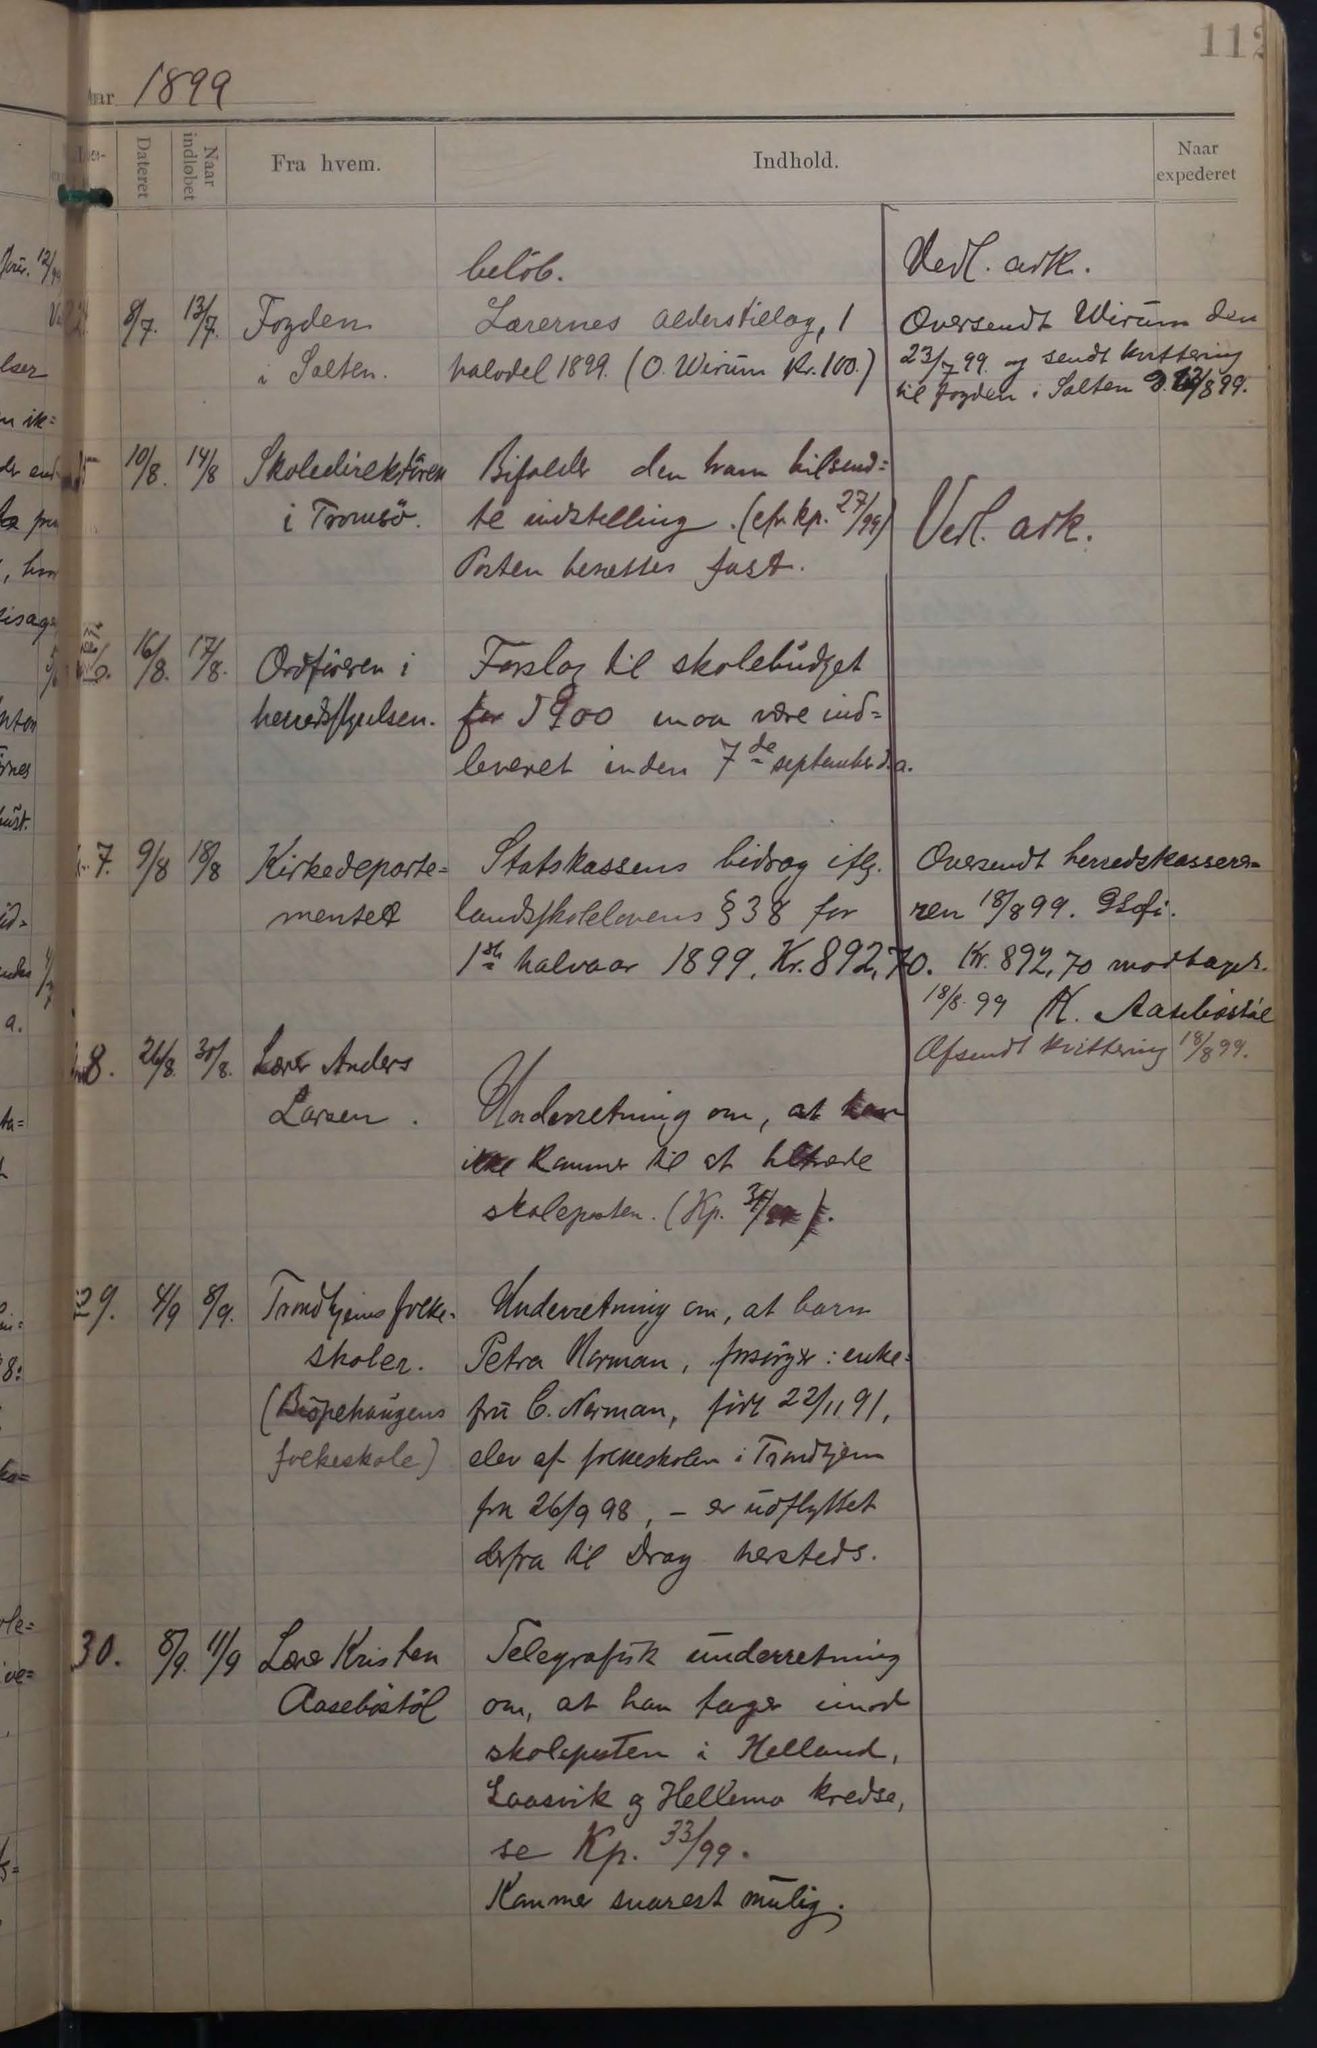 112
aar 1899
Dateret
Naar indløbet
Fra hvem.
Indhold.
Naar expederet
beløb.
Vedl. ark.
8/7. 13/7. Fogden Lærernes alderstillæg, 1 Oversendt Wirum den
i Salten. halvdel 1899. (O. Wirum Kr. 100.) 23/7 99 og sendt kvittering
til fogden i Salten /8 99.
10/8. 14/8 Skoledirektøren Bifalder den ham tilsend=
i Tromsø. te indstilling. (cfr. kp. 27/99) Vedl. ark.
Posten besættes fast.
16/8. 17/8. Ordføreren i Forslag til skolebudget
herredsstyrelsen. for 1900 maa være ind=
leveret inden 7de september d.a.
7. 9/8 18/8 Kirkedeparte= Statskassens bidrag iflg. Oversendt herredskassere=
mentet landsskolelovens § 38 for ren 18/8 99.
1ste halvaar 1899. Kr. 892,70. Kr. 892,70 modtaget.
18/8 99 K. Aasebøstøl
8. 26/8. 30/8. Lærer Anders Afsendt kvittering 18/8 99.
Larsen. Underretning om, at han
ikke kommer til at tiltræde
skoleposten. (Kp.
29. 4/9 8/9. Trondhjems folke- Underretning om, at barn
skoler. Petra Norman, forsørger: enke=
(Bispehaugens fru C. Norman, født 22/11 91,
folkeskole) elev af folkeskolen i Trondhjem
fra 26/9 98, – er udflyttet
derfra til Drag hersteds.
30. 8/9. 11/9 Lærer Kristen Telegrafisk underretning
Aasebøstøl om, at han tager imod
skoleposten i Helland,
Laasvik og Hellemo kredse,
se Kp. 33/99.
Kommer snarest mulig.